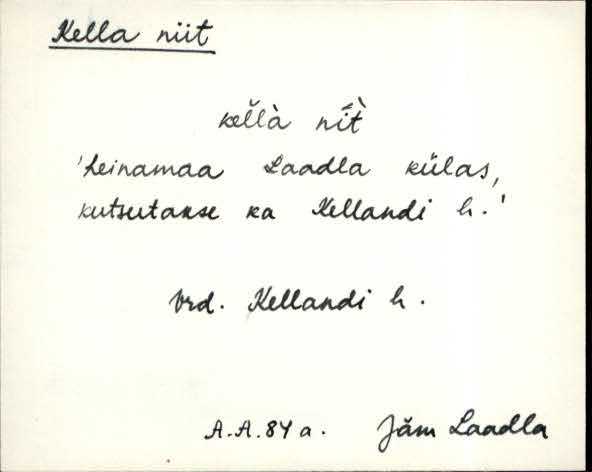 Kella niit
kel̆l̀à ní̀t̀
'heinamaa Laadla külas,
kutsutakse ka Kellandi h.'
Vrd. Kellandi h.
A.A. 84 a. Jäm Laadla